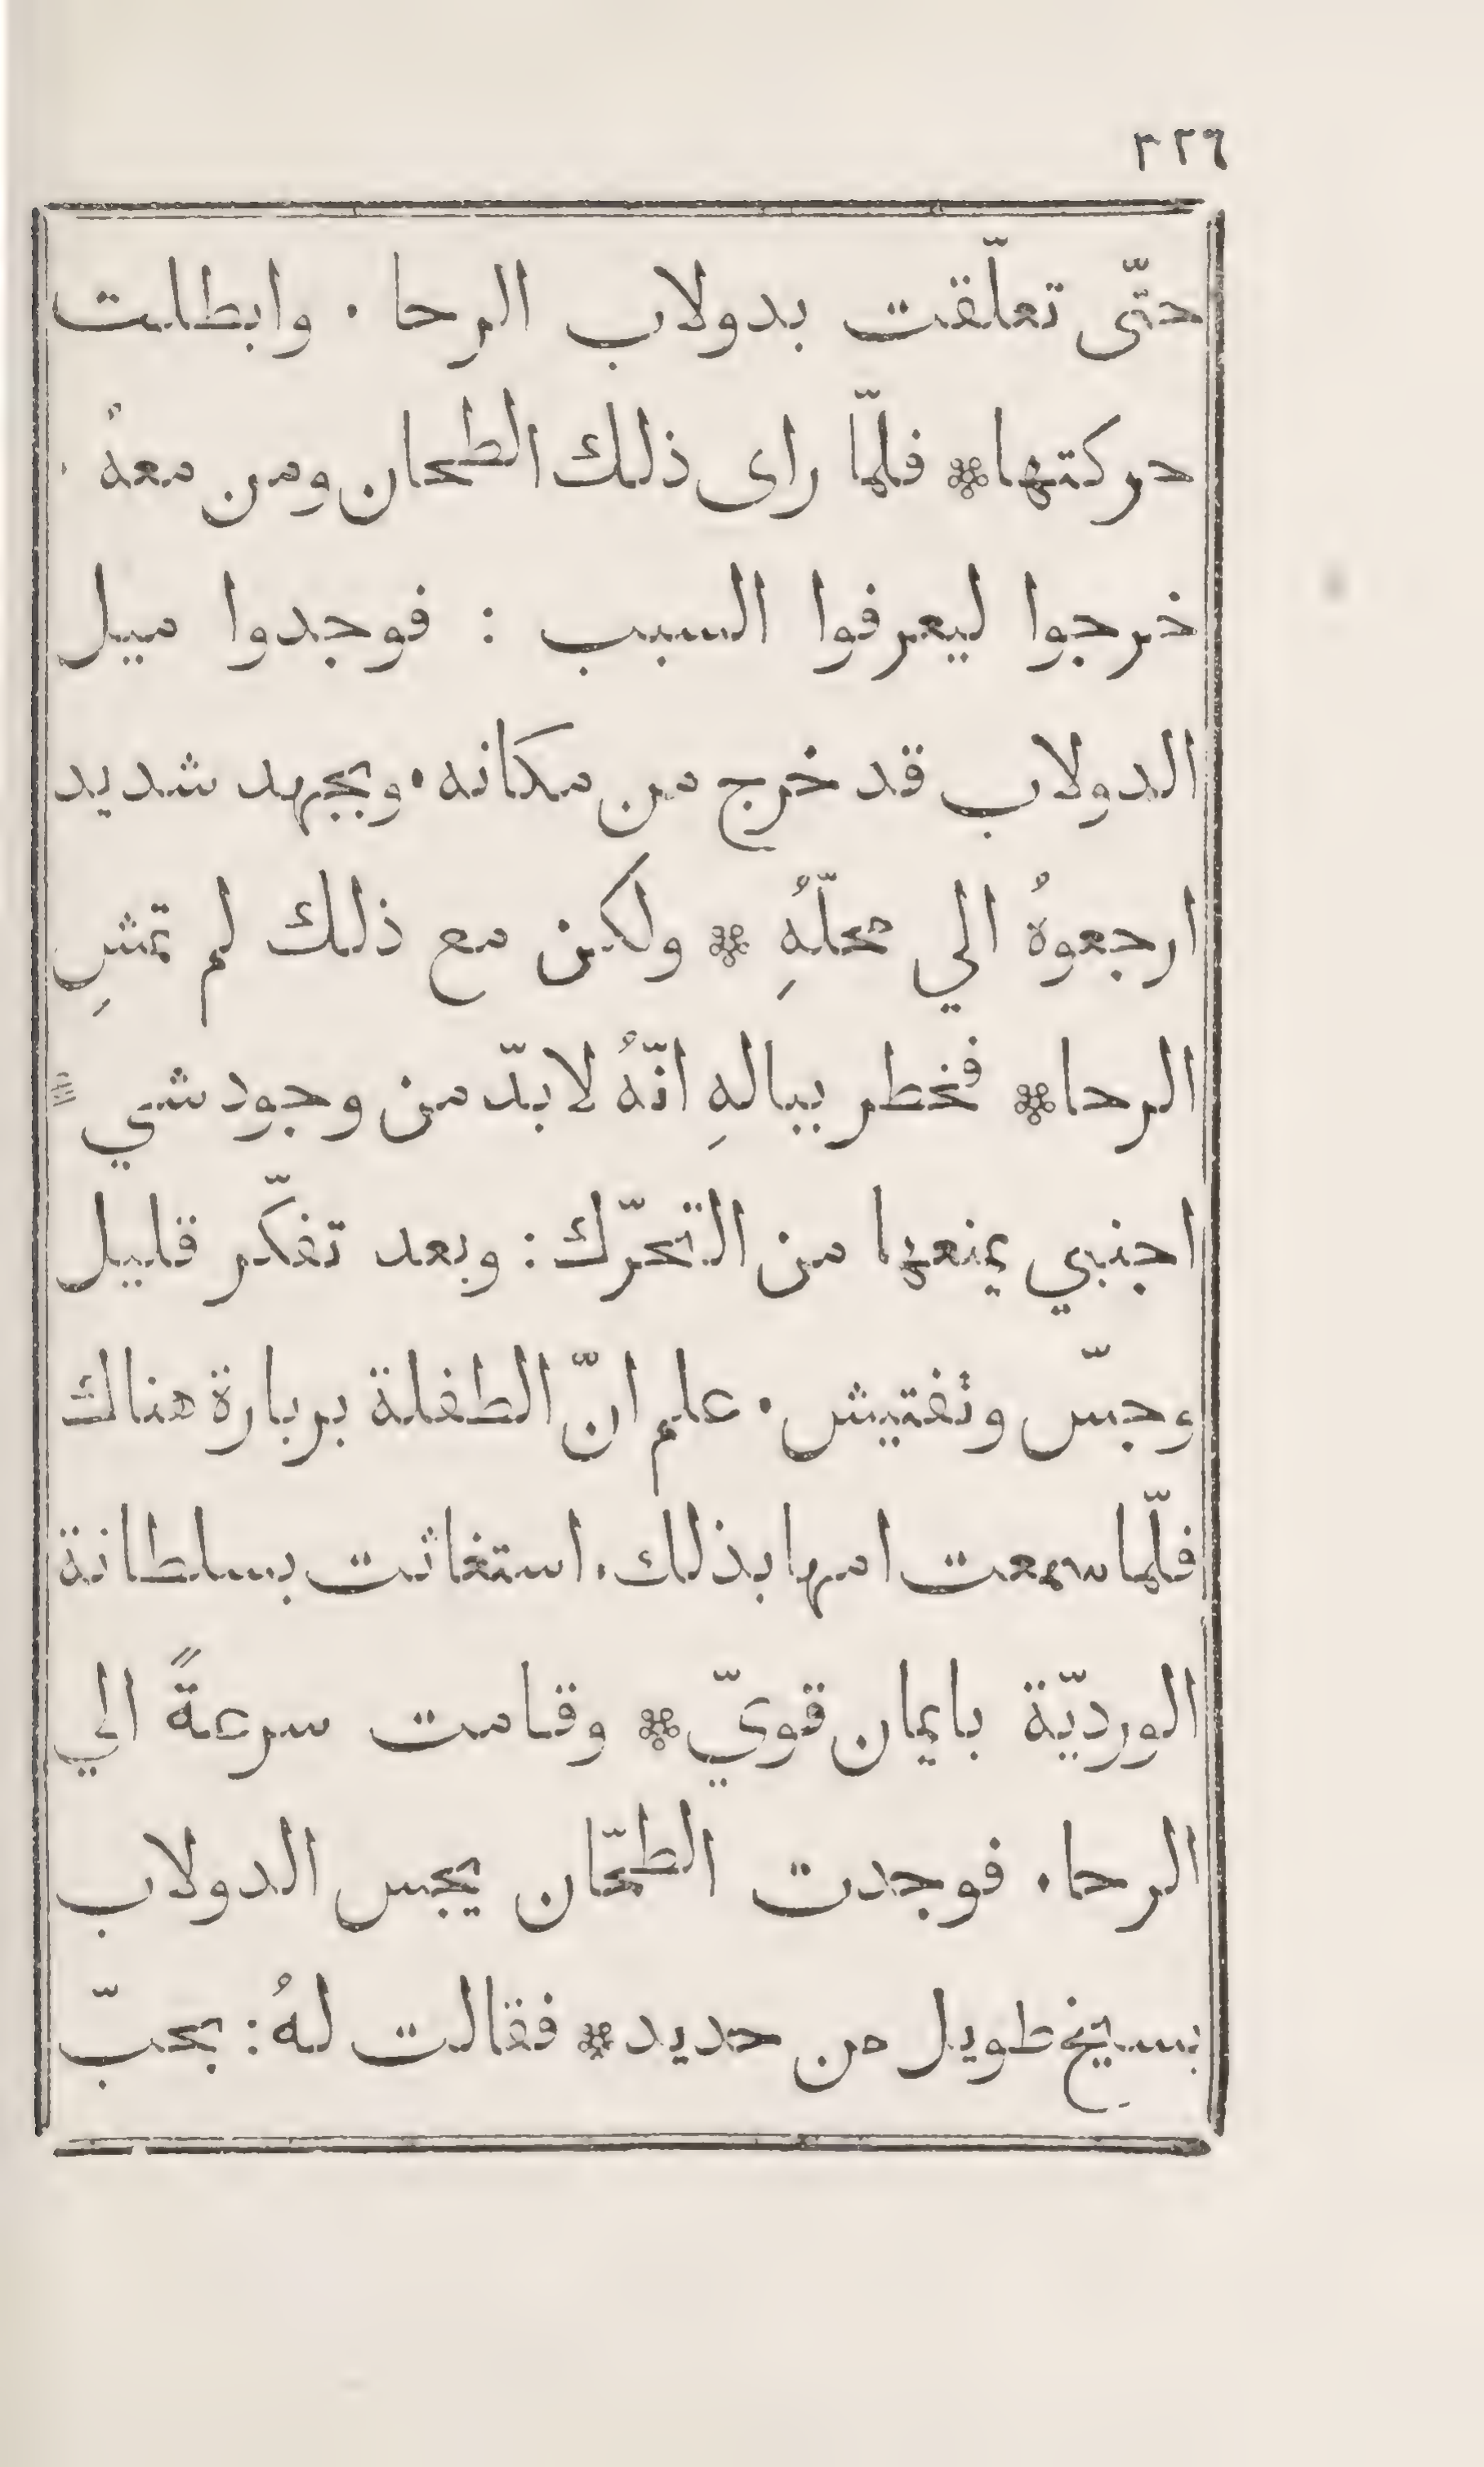 ٣٢٦
حتّى تعلّقت بدولاب الرحا . وابطلت
حركتها ❊ فلمّا راى ذلك الطحان ومن معهُ .
خرجوا ليعرفوا السبب : فوجدوا ميل
الدولاب قد خرج من مكانه . وبجهد شديد
ارجعوهُ الي محلّهِ ❊ ولكن مع ذلك لم تمشِ
الرحا ❊ فخطر ببالهِ انّهُ لا بدّ من وجود شي
اجنبي يمنعها من التحرّك : وبعد تفكّر قليل
وجسّ وتفتيش . علم انّ الطفلة بربارة هناك
فلمّا سمعت امها بذلك . استغاثت بسلطانة
الورديّة بايمان قويّ ❊ وقامت سرعةً الي
الرحا . فوجدت الطحّان يجس الدولاب
بسيخ طويل من حديد ❊ فقالت لهُ : بحبّ